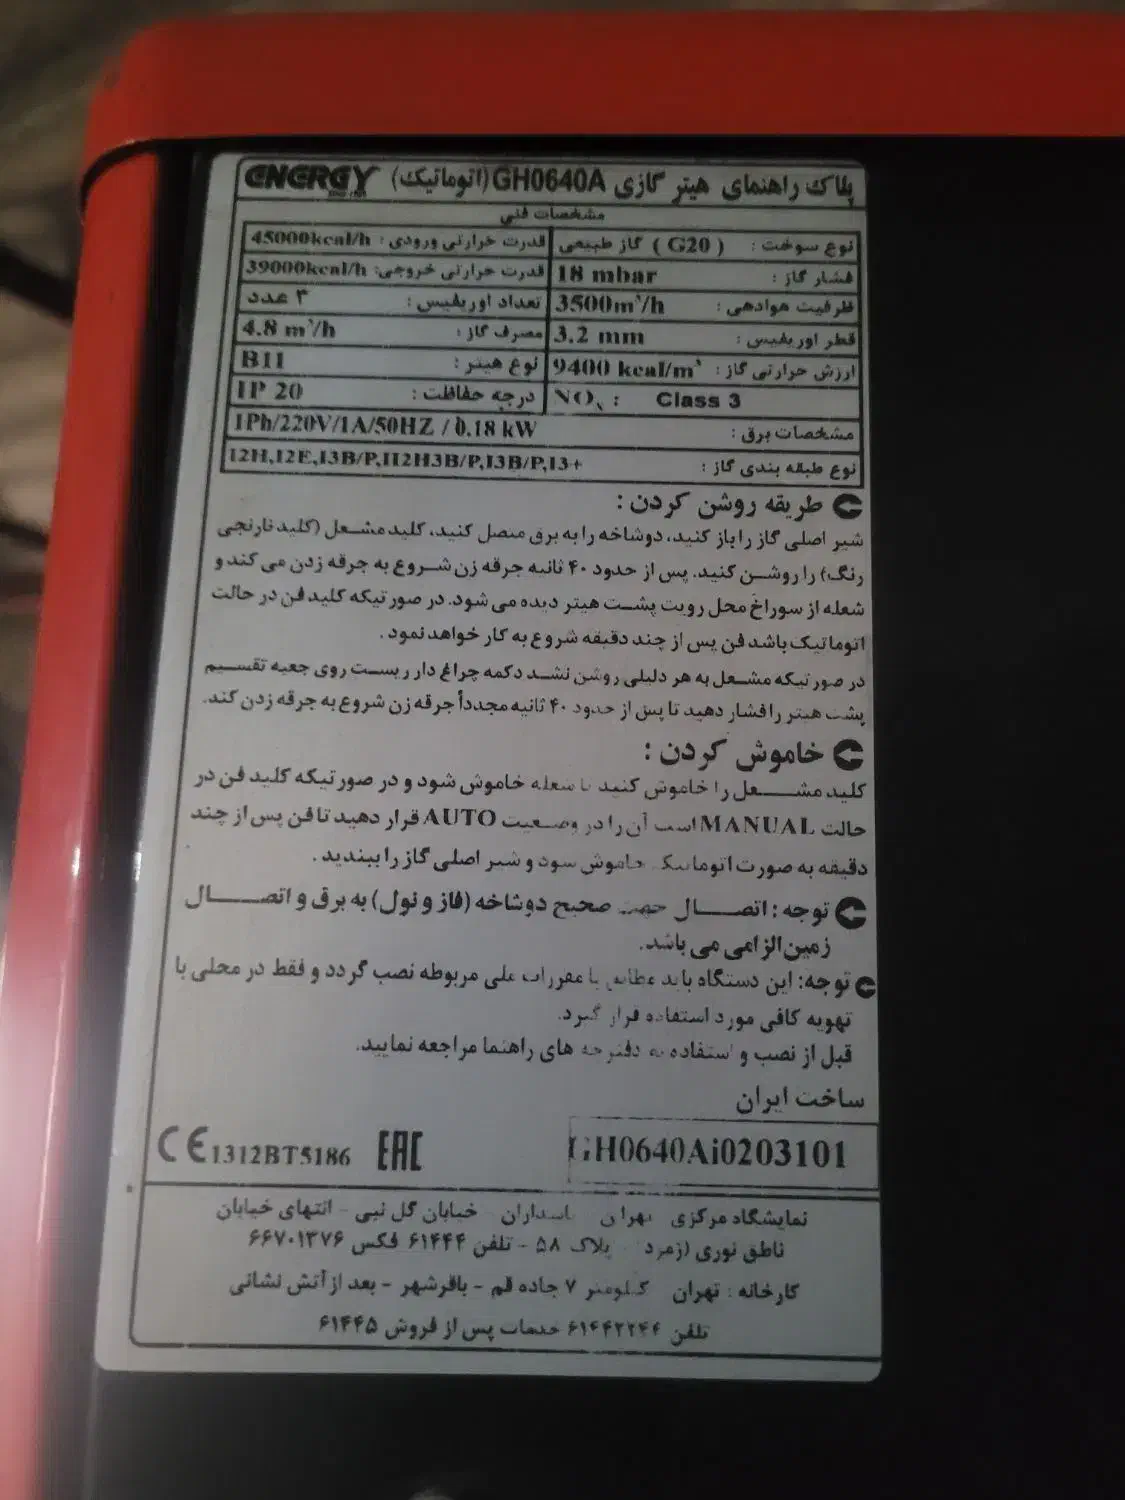 پلاک راهنمای هیتر گازی GH0640A (اتوماتیک) ENERGY
مشخصات فنی
نوع سوخت : گاز طبیعی ( G20 ) قدرت حرارتی ورودی : 45000kcal/h
فشار گاز : 18 mbar قدرت حرارتی خروجی: 39000kcal/h
ظرفیت هوادهی : 3500m³/h تعداد اوریفیس : ۳ عدد
قطر اوریفیس : 3.2 mm مصرف گاز : 4.8 m³/h
ارزش حرارتی گاز : 9400 kcal/m³ نوع هیتر : B11
NOx : Class 3 درجه حفاظت : IP 20
مشخصات برق : 1Ph/220V/1A/50HZ / 0.18 kW
نوع طبقه بندی گاز : I2H,I2E,I3B/P,II2H3B/P,I3B/P,I3+
طریقه روشن کردن :
شیر اصلی گاز را باز کنید، دوشاخه را به برق متصل کنید، کلید مشعل (کلید نارنجی
رنگ) را روشن کنید. پس از حدود ۴۰ ثانیه جرقه زن شروع به جرقه زدن می کند و
شعله از سوراخ محل رویت پشت هیتر دیده می شود. در صورتیکه کلید فن در حالت
اتوماتیک باشد فن پس از چند دقیقه شروع به کار خواهد نمود .
در صورتیکه مشعل به هر دلیلی روشن نشد دکمه چراغ دار ریست روی جعبه تقسیم
پشت هیتر را فشار دهید تا پس از حدود ۴۰ ثانیه مجدداً جرقه زن شروع به جرقه زدن کند.
خاموش کردن :
کلید مشعل را خاموش کنید تا شعله خاموش شود و در صورتیکه کلید فن در
حالت MANUAL است آن را در وضعیت AUTO قرار دهید تا فن پس از چند
دقیقه به صورت اتوماتیک خاموش شود و شیر اصلی گاز را ببندید .
توجه : اتصال جهت صحیح دوشاخه (فاز و نول) به برق و اتصال
زمین الزامی می باشد.
توجه: این دستگاه باید مطابق با مقررات ملی مربوطه نصب گردد و فقط در محلی با
تهویه کافی مورد استفاده قرار گیرد.
قبل از نصب و استفاده به دفترچه های راهنما مراجعه نمایید.
ساخت ایران
CE 1312BT5186 EAC GH0640Ai0203101
نمایشگاه مرکزی تهران - پاسداران - خیابان گل نبی - انتهای خیابان
ناطق نوری (زمرد) پلاک ۵۸ - تلفن ۶۱۴۴۴ فکس ۶۶۷۰۱۳۷۶
کارخانه : تهران کیلومتر ۷ جاده قم - باقرشهر - بعد از آتش نشانی
تلفن ۶۱۴۴۲۲۴۴ خدمات پس از فروش ۶۱۴۴۵